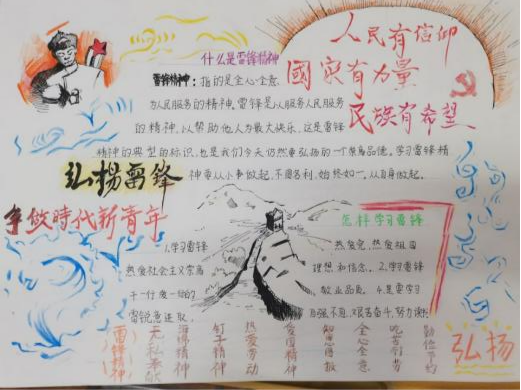 人民有信仰
国家有力量
民族有希望
什么是雷锋精神
雷锋精神：指的是全心全意
为人民服务的精神，雷锋是以服务人民服务
的精神，以帮助他人为最大快乐，这是雷锋
精神的典型的标识，也是我们今天仍然要弘扬的一个优良品德。学习雷锋精
神要从小事做起，不图名利，始终如一，从自身做起。
弘扬雷锋
争做时代新青年
怎样学习雷锋
1.学习雷锋
热爱党，热爱祖国
热爱社会主义崇高
理想和信念。2.学习雷锋
干一行爱一行的
敬业品质。4.是要学习
雷锋锐意进取
自强不息，艰苦奋斗，努力
雷锋精神
无私奉
钉子精神
热爱劳动
爱国精神
全心全意
吃苦耐劳
勤俭节约
弘扬